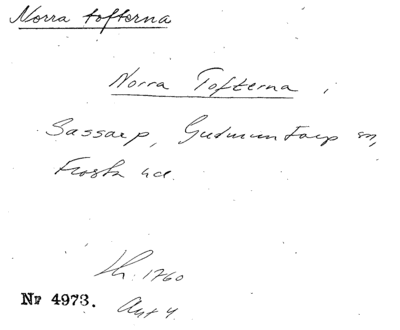 Norra tofterna
Norra Tofterna,
Sassarp, Gudmuntorp sn,
Frosta hd.
Lk. 1760
Nr 4973.
Akt 4.